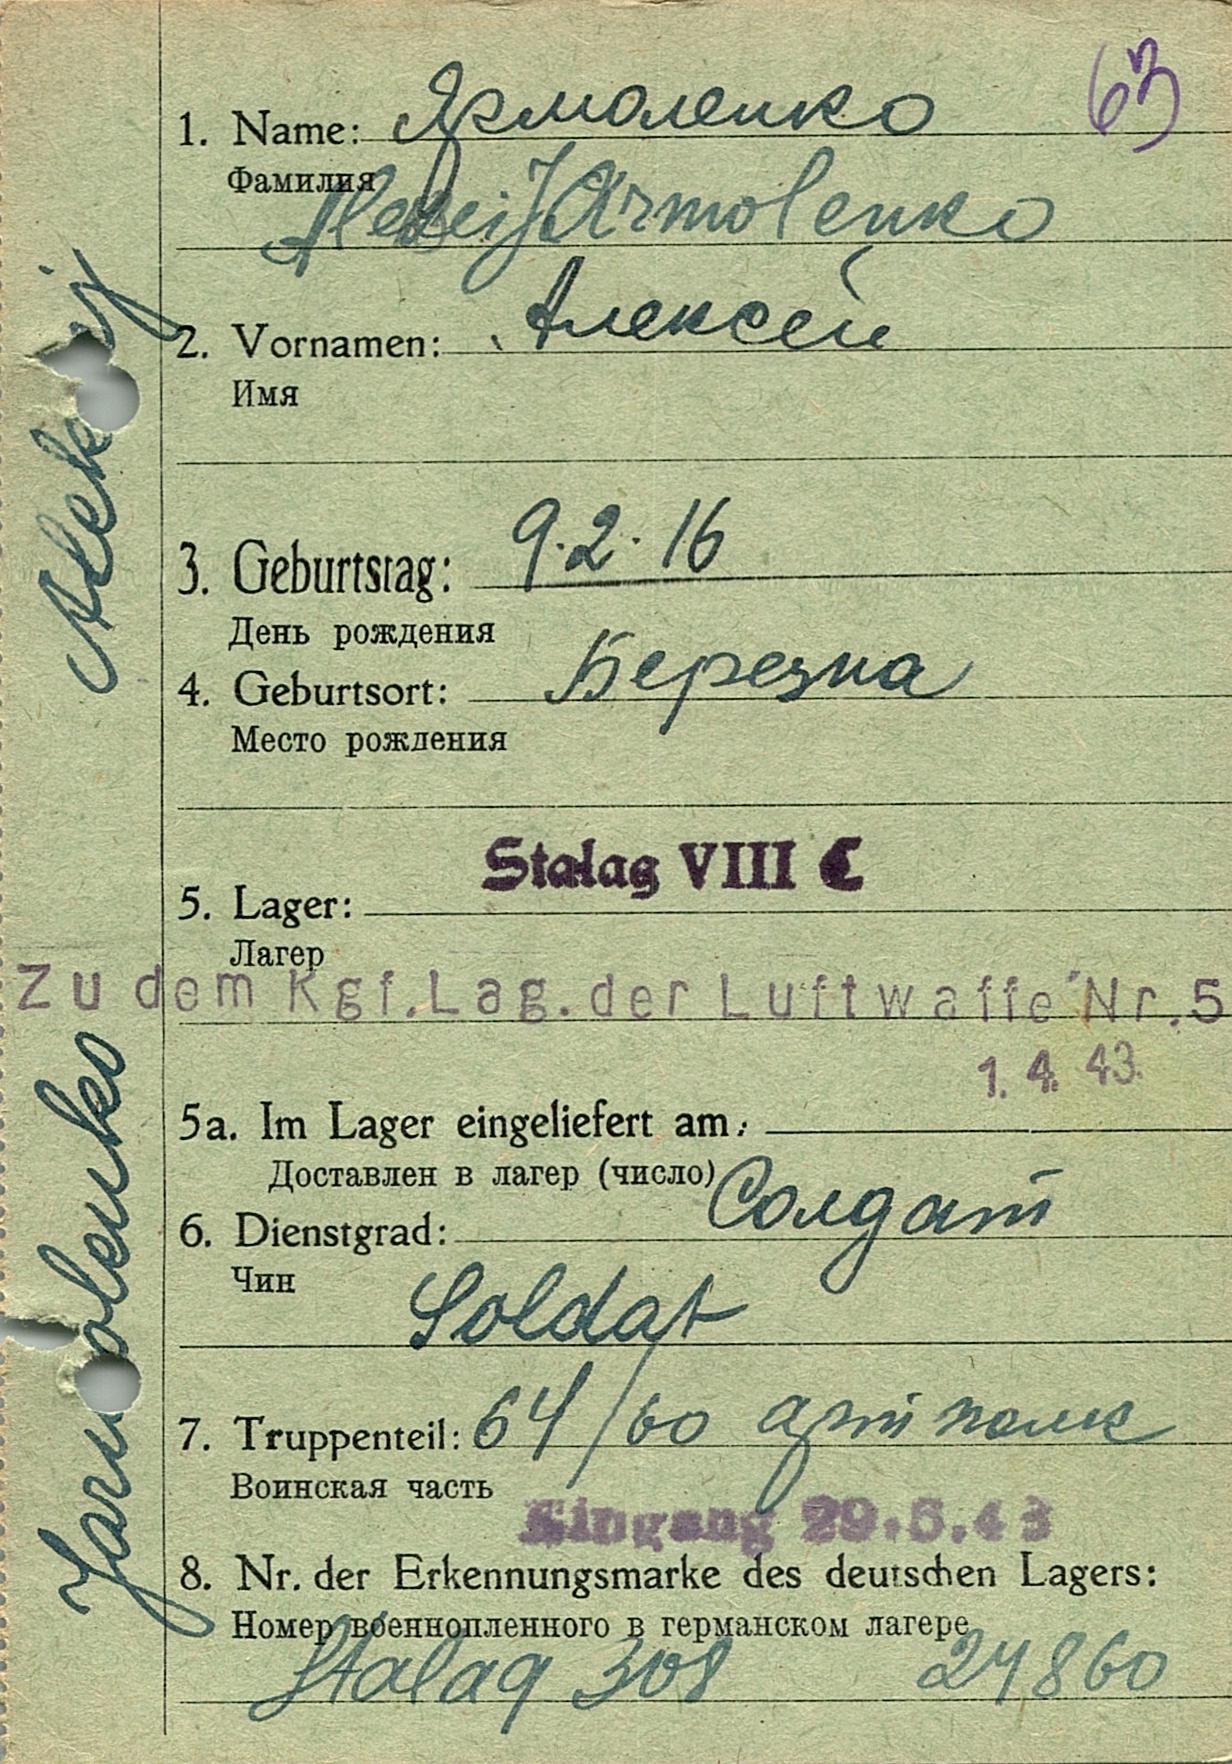 63
1. Name: Ярмоленко
Фамилия
Alexei Jarmolenko
2. Vornamen: Алексей
Имя
3. Geburtstag: 9.2.16
День рождения
4. Geburtsort: Березна
Место рождения
Stalag VIII C
5. Lager:
Лагер
Zu dem Kgf.Lag. der Luftwaffe Nr. 5
1. 4. 43.
5a. Im Lager eingeliefert am:
Доставлен в лагер (число)
6. Dienstgrad: Солдат
Чин
Soldat
7. Truppenteil: 64/60 арт полк
Воинская часть
Eingang 29.5.43
8. Nr. der Erkennungsmarke des deutschen Lagers:
Номер военнопленного в германском лагере
Stalag 308 24860
Jarmolenko Aleksij